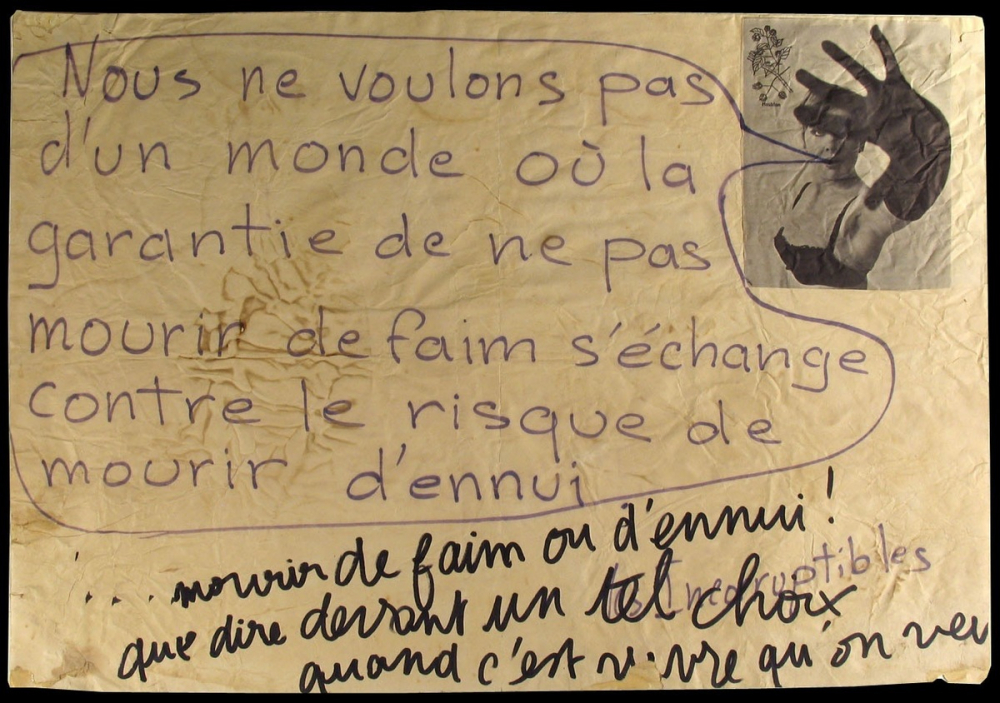 Nous ne voulons pas
d'un monde où la
garantie de ne pas
mourir de faim s'échange
contre le risque de
mourir d'ennui
Les Incorruptibles
... mourir de faim ou d'ennui !
que dire devant un tel choix
quand c'est vivre qu'on veu